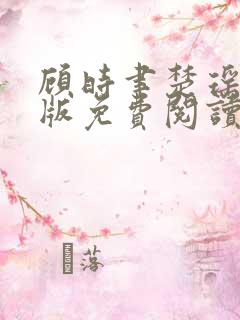 顾时書楚瑶
版免費閱讀
落